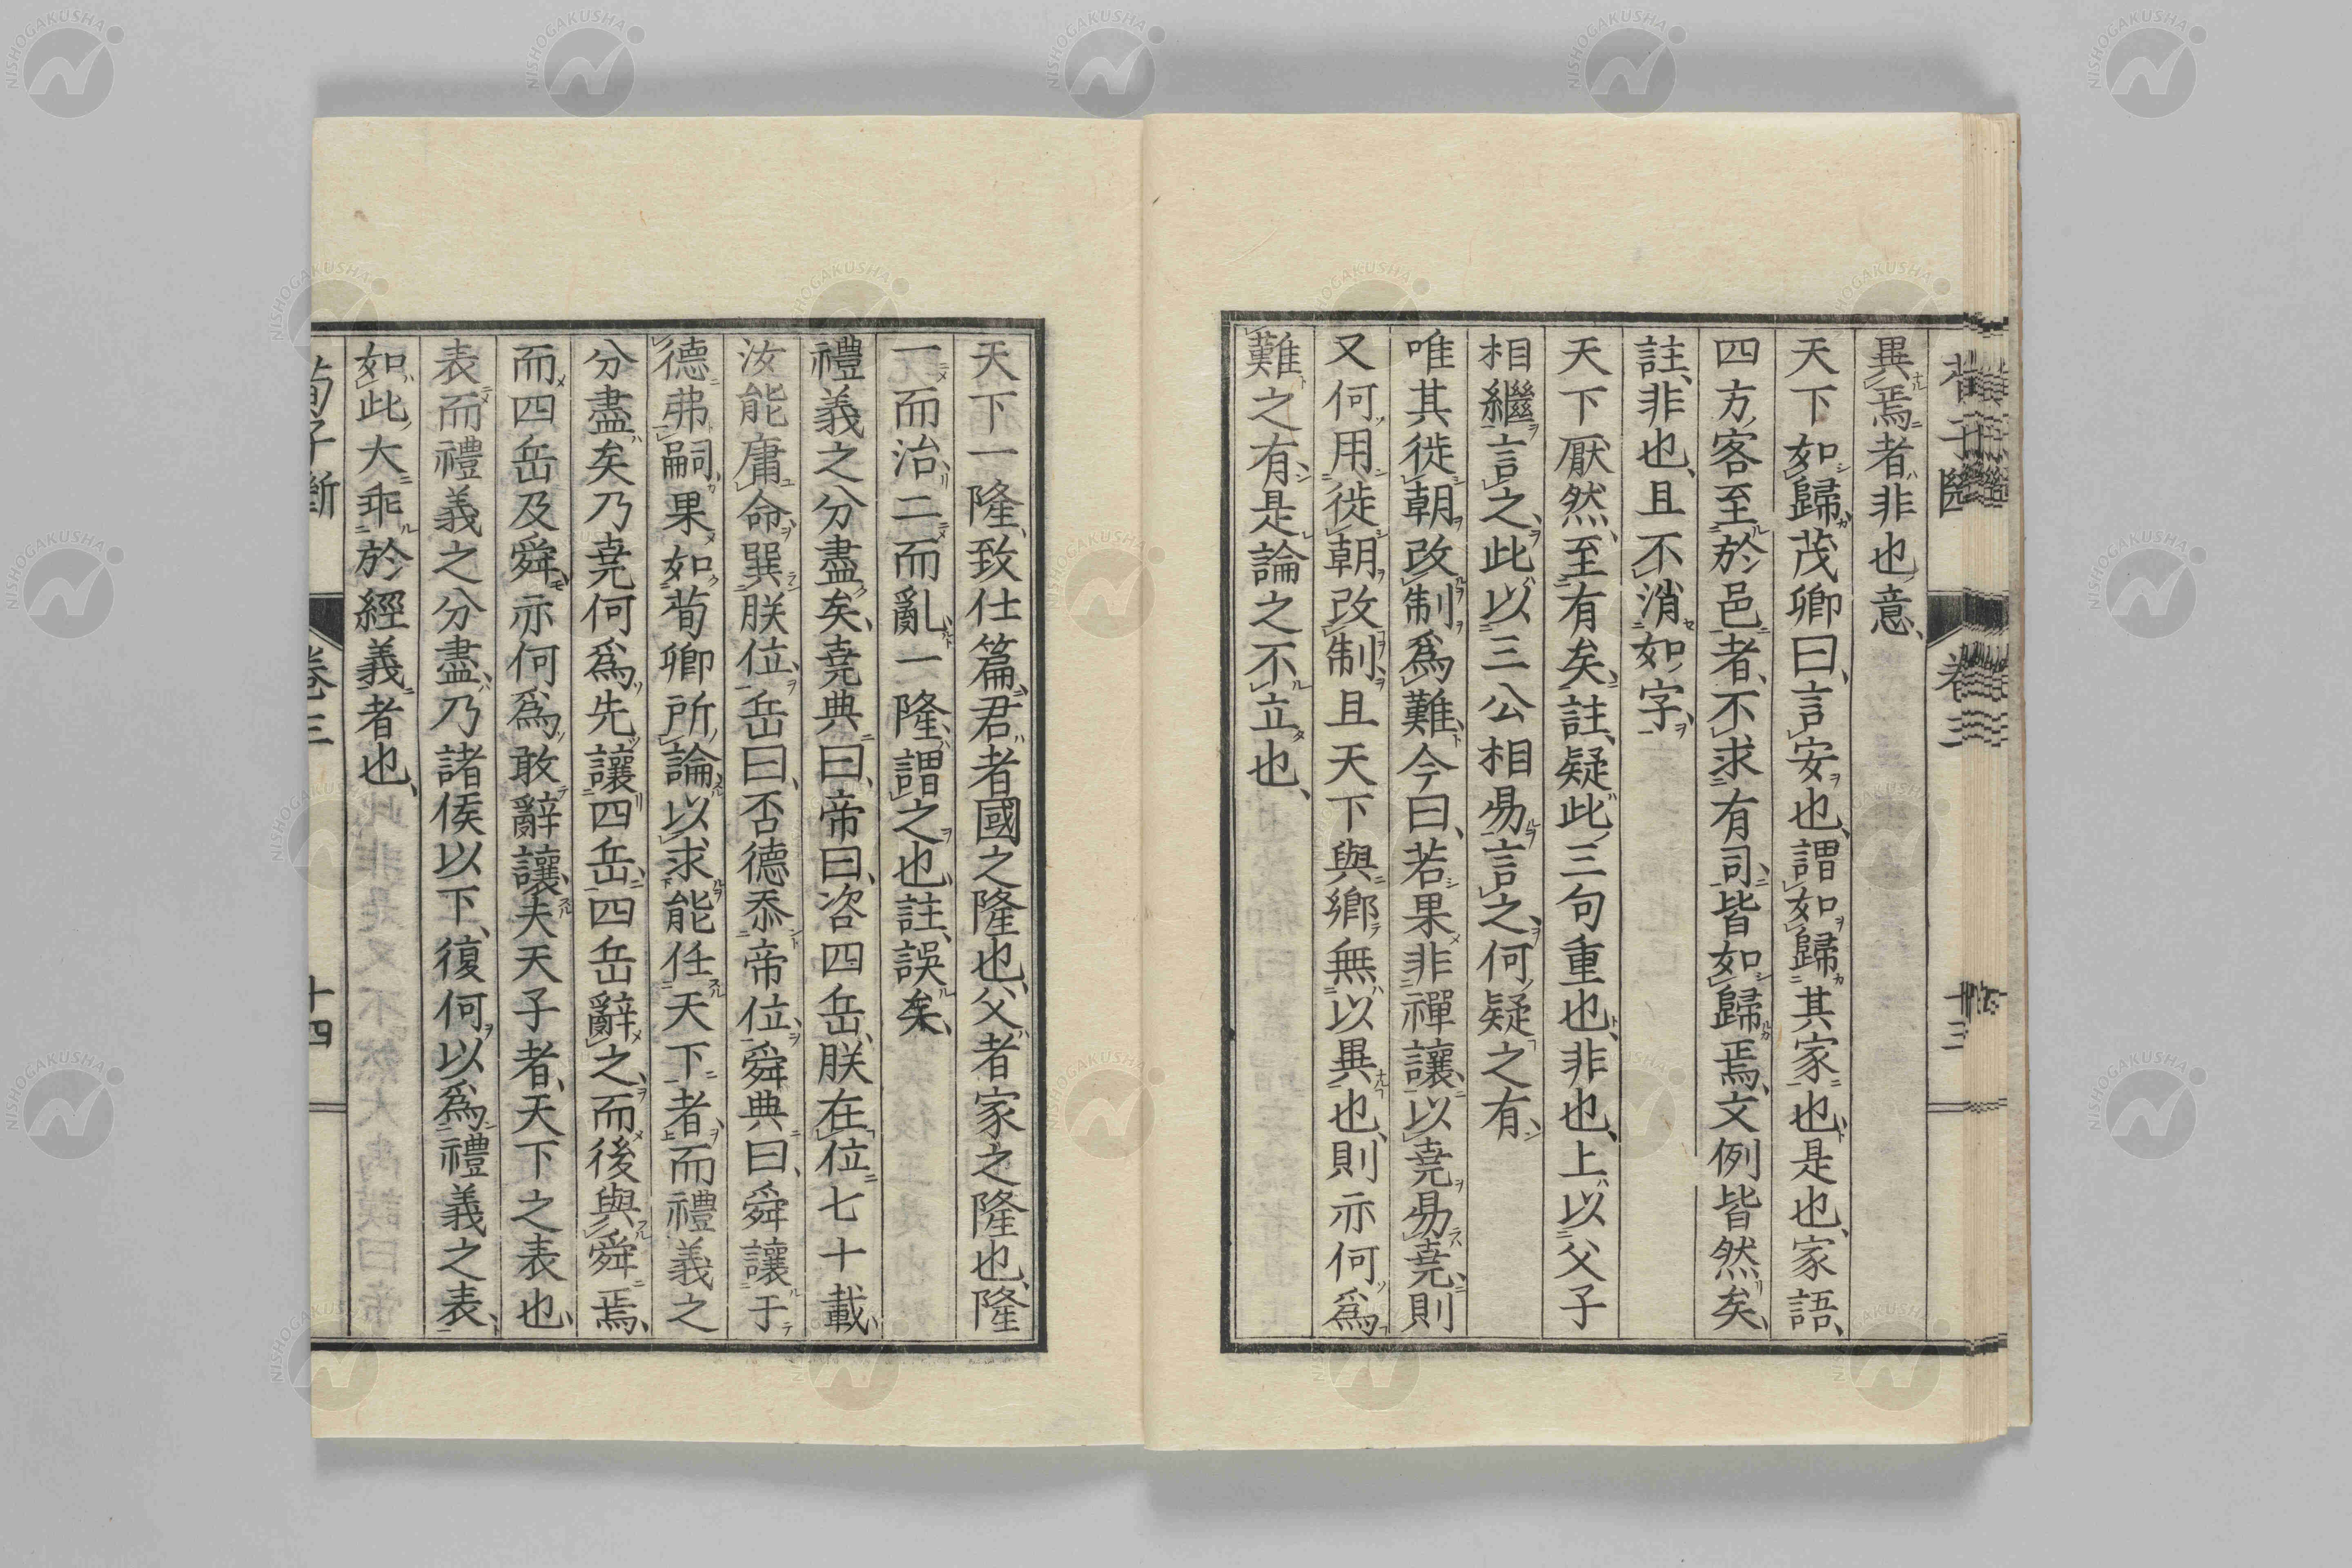 異焉者非也意、
天下如歸茂卿曰、言安也、謂如歸其家也、是也、家語、
四方客至於邑者、不求有司、皆如歸焉、文例皆然矣、
註、非也、且不消如字、
天下厭然、至有矣、註、疑此三句重也、非也、上以父子
相繼言之、此以三公相易言之、何疑之有、
唯其徙朝改制爲難、今曰、若果非禪讓、以堯易堯、則
又何用徙朝改制、且天下與鄉無以異也、則亦何爲
難之有、是論之不立也、
天下一隆、致仕篇、君者國之隆也、父者家之隆也、隆
一而治、二而亂、一隆、謂之也、註、誤矣、
禮義之分盡矣、堯典曰、帝曰、咨四岳、朕在位七十載、
汝能庸命巽朕位、岳曰、否德忝帝位、舜典曰、舜讓于
德弗嗣、果如荀卿所論、以求能任天下者、而禮義之
分盡矣、乃堯何爲先讓四岳、四岳辭之、而後與舜焉、
而四岳及舜亦何爲敢辭讓、夫天子者、天下之表也、
表而禮義之分盡、乃諸侯以下、復何以爲禮義之表、
如此大乖於經義者也、
荀子斷
卷三
十四